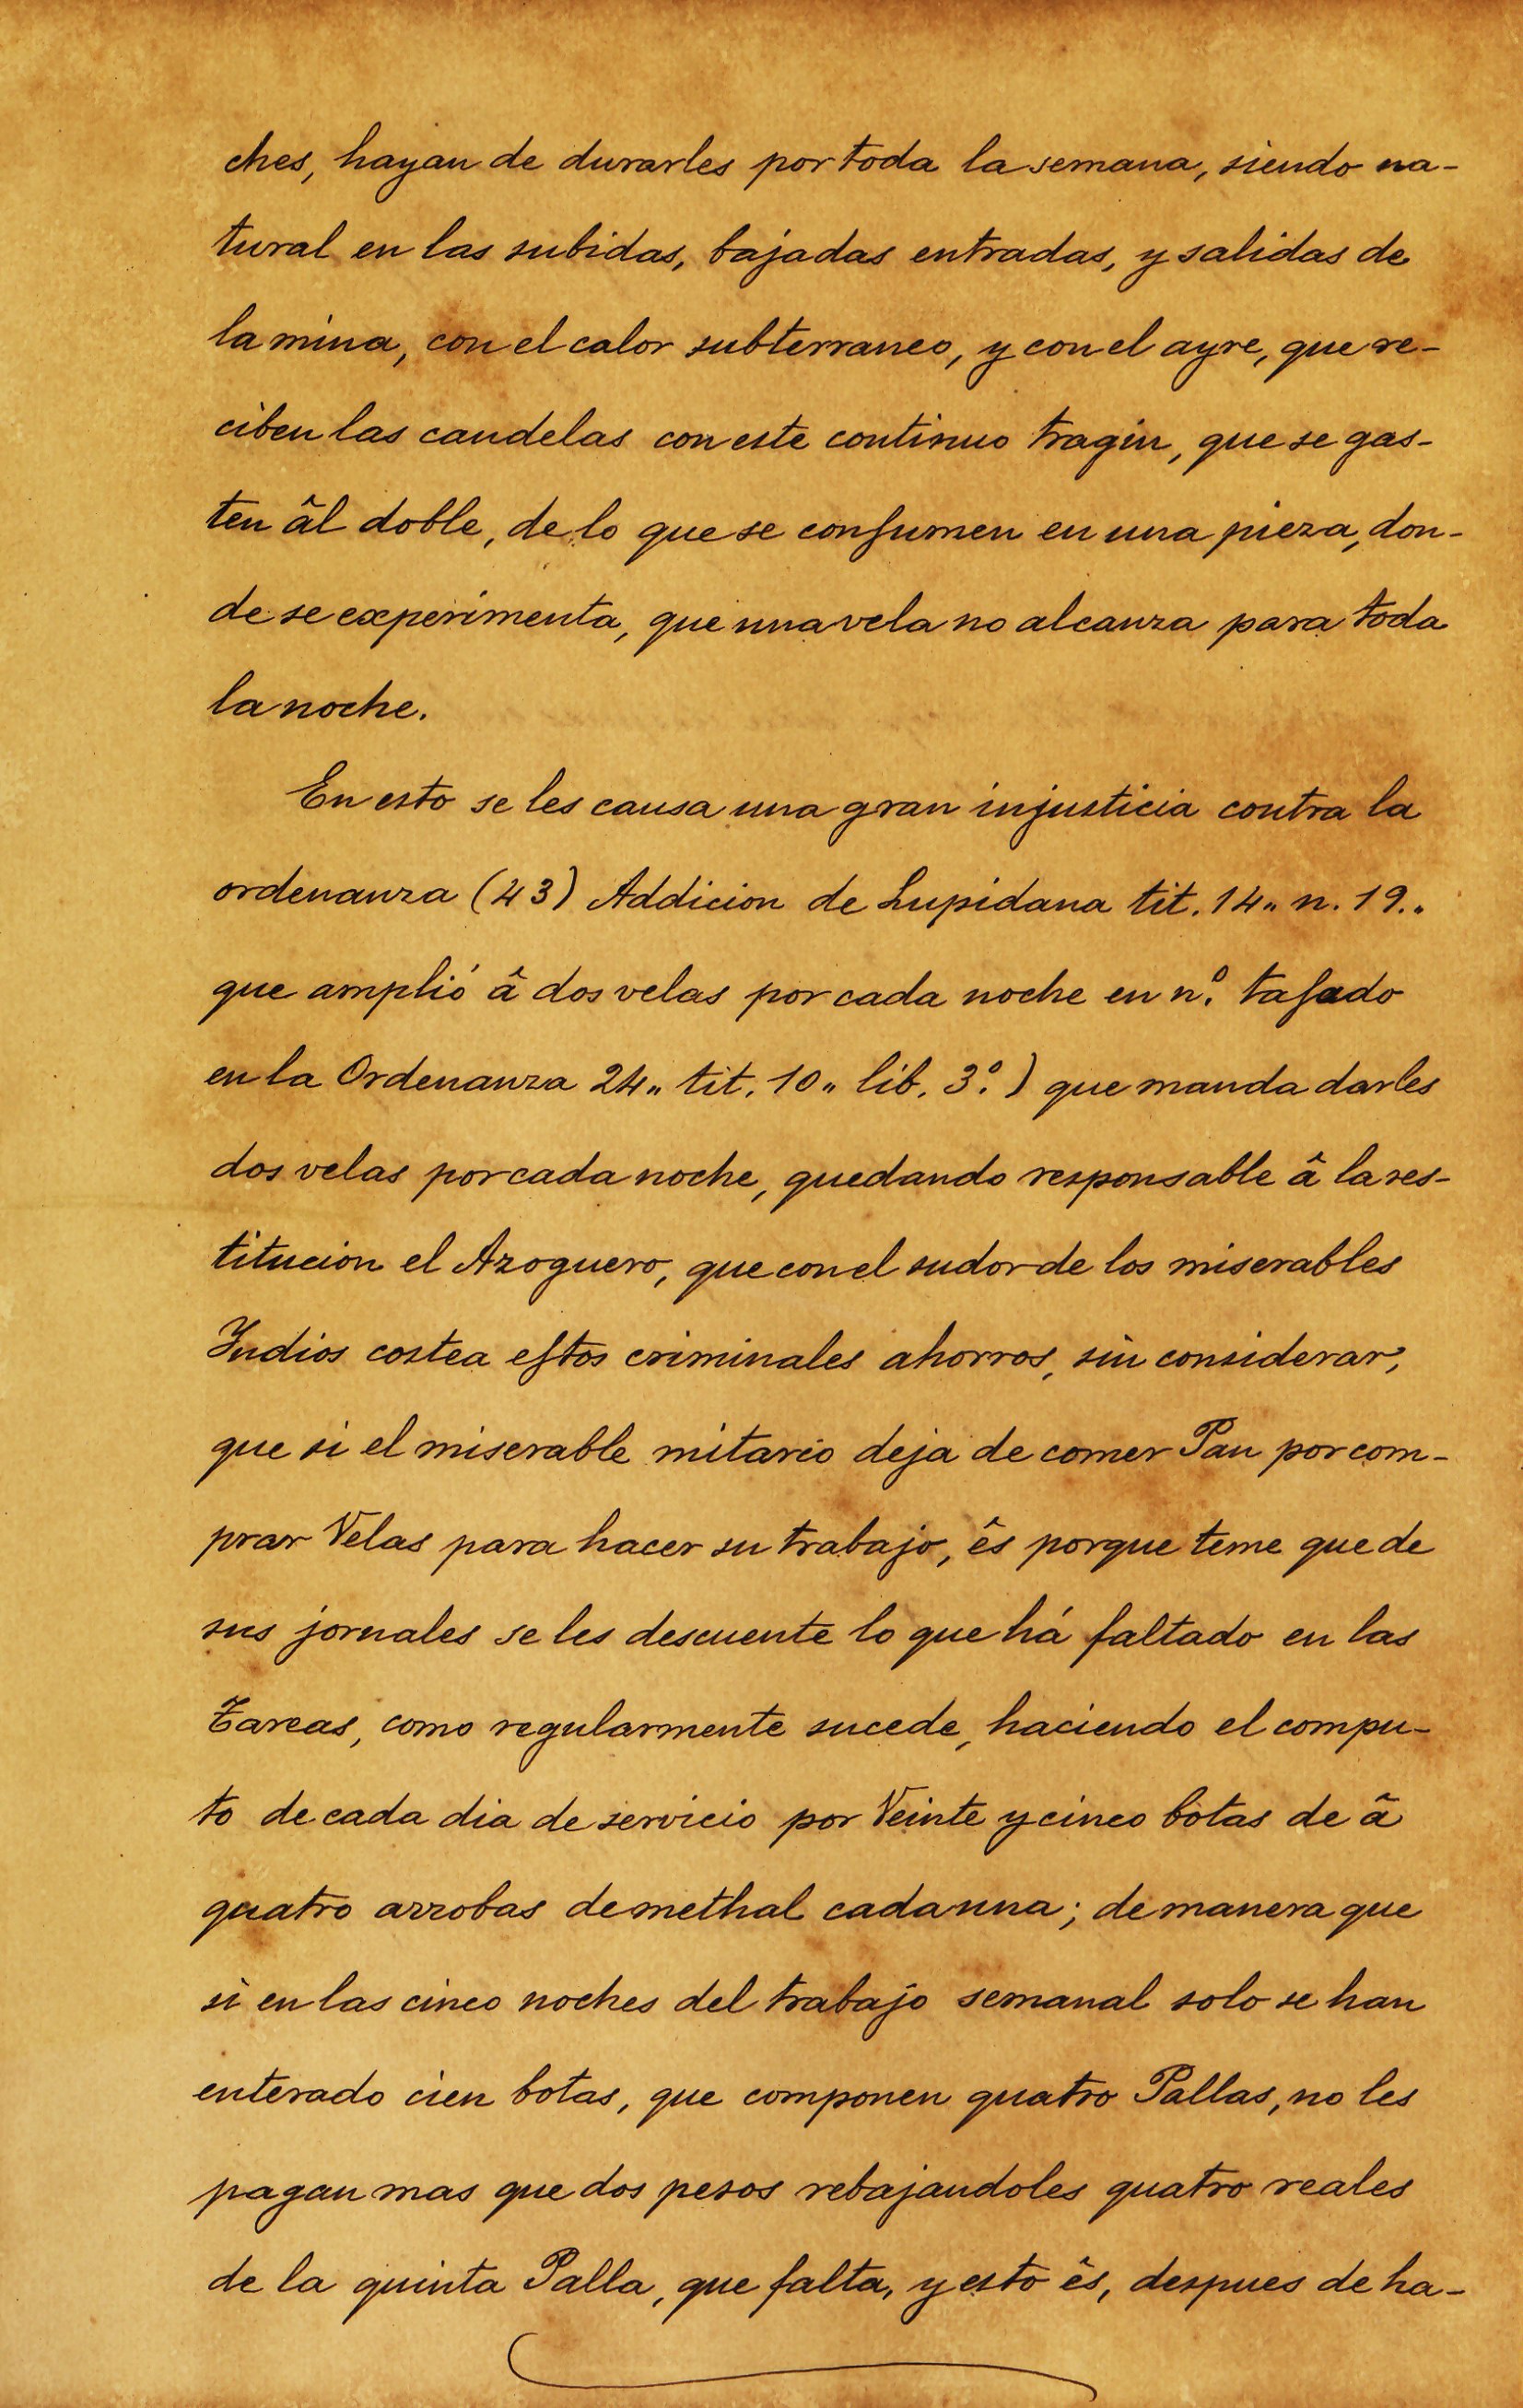 ches, hayan de durarles por toda la semana, siendo na-
tural en las subidas, bajadas entradas, y salidas de
la mina, con el calor subterraneo, y con el ayre, que re-
ciben las candelas con este continuo tragin, que se gas-
ten âl doble, de lo que se conſumen en una pieza, don-
de se experimenta, que una vela no alcanza para toda
la noche.
En esto se les causa una gran injusticia contra la
ordenanza (43) Addicion de Lupidana tit. 14„ n. 19.„
que amplió â dos velas por cada noche en nº. taſado
en la Ordenanza 24„ tit. 10„ lib. 3º.) que manda darles
dos velas por cada noche, quedando responsable â la res-
titucion el Azoguero, que con el sudor de los miserables
Yndios costea eſtos criminales ahorros, sin considerar,
que si el miserable mitario deja de comer Pan por com-
prar Velas para hacer su trabajo, ês porque teme que de
sus jornales se les descuente lo que há faltado en las
Tareas, como regularmente sucede, haciendo el compu-
to de cada dia de servicio por Veinte y cinco botas de â
quatro arrobas de methal cada una; de manera que
si en las cinco noches del trabajo semanal solo se han
enterado cien botas, que componen quatro Pallas, no les
pagan mas que dos pesos rebajandoles quatro reales
de la quinta Palla, que falta, y esto ês, despues de ha-